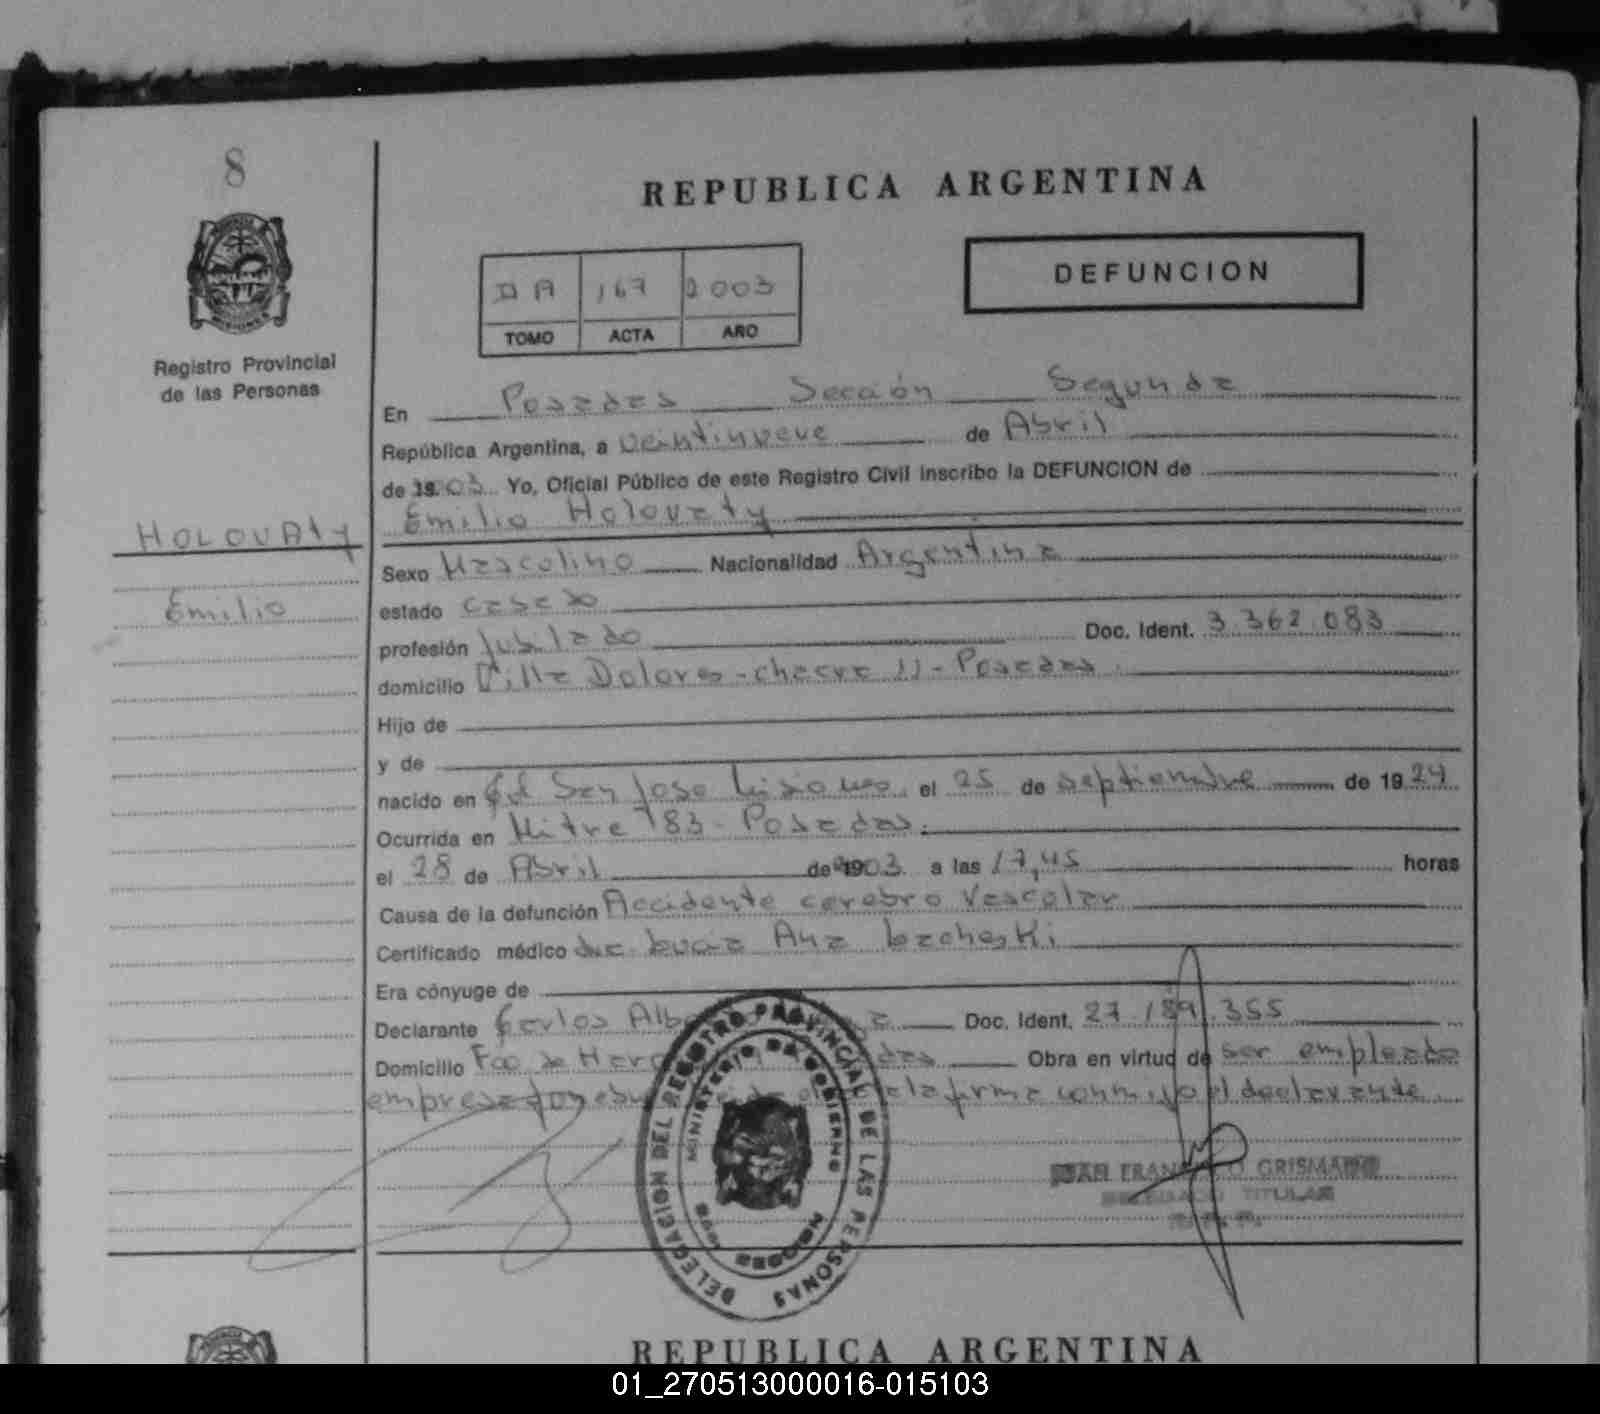 8
REPUBLICA ARGENTINA
DEFUNCION
DA 167 2003
TOMO ACTA AÑO
Registro Provincial
de las Personas
En Posadas Sección Segunda
República Argentina, a veintinueve de Abril
de 19 03 Yo, Oficial Público de este Registro Civil inscribo la DEFUNCION de
HOLOVATY
Emilio Holovaty
Sexo Masculino Nacionalidad Argentina
Emilio
estado casado
profesión Jubilado Doc. Ident. 3.362.083
domicilio Villa Dolores - chacra 11 - Posadas
Hijo de
y de
nacido en San Jose Misiones el 25 de septiembre de 1924
Ocurrida en Mitre 783 - Posadas
el 28 de Abril de 1903 a las 17,45 horas
Causa de la defunción Accidente cerebro Vascular
Certificado médico Ana
Era cónyuge de
Declarante Carlos Doc. Ident. 27.189.355
Domicilio Obra en virtud de ser empleado
empresa la firma conmigo el declarante
DELEGACION DEL REGISTRO PROVINCIAL DE LAS PERSONAS
MINISTERIO DE GOBIERNO
MISIONES
JUAN FRANCISCO GRISMADO
DELEGADO TITULAR
REPUBLICA ARGENTINA
01_270513000016-015103